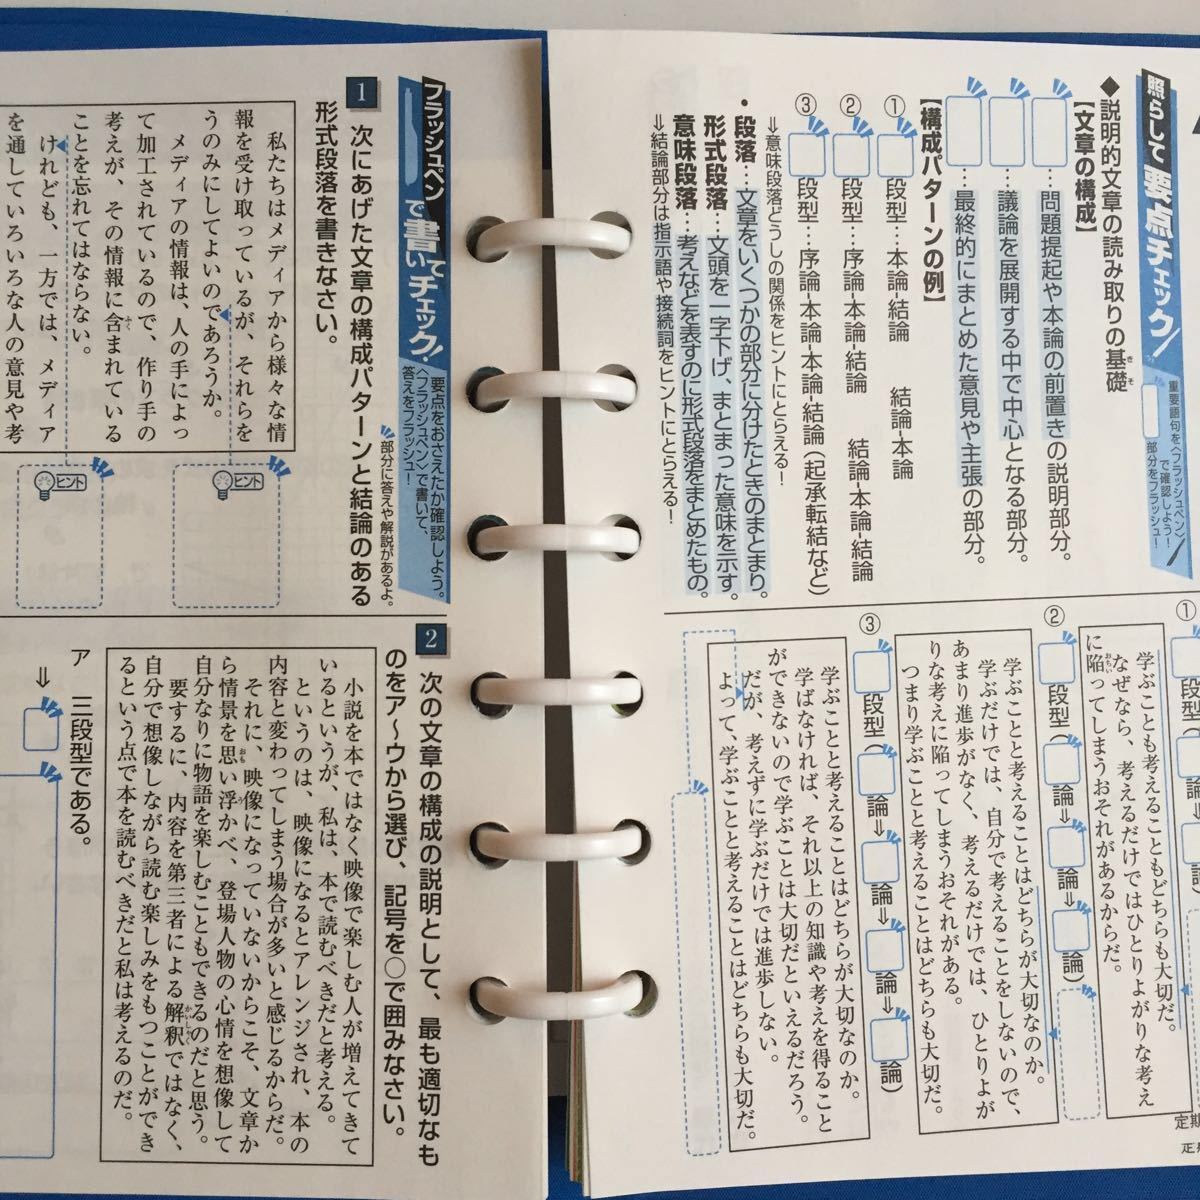 照らして要点チェック!
重要語句を〈フラッシュペン〉で確認しよう!
部分をフラッシュ!
◆説明的文章の読み取りの基礎
きそ
【文章の構成】
…問題提起や本論の前置きの説明部分。
…議論を展開する中で中心となる部分。
…最終的にまとめた意見や主張の部分。
【構成パターンの例】
① 段型…本論-結論 結論-本論
② 段型…序論-本論-結論 結論-本論-結論
③ 段型…序論-本論-本論-結論(起承転結など)
⇒意味段落どうしの関係をヒントにとらえる!
・段落…文章をいくつかの部分に分けたときのまとまり。
形式段落…文頭を一字下げ、まとまった意味を示す。
意味段落…考えなどを表すのに形式段落をまとめたもの。
⇒結論部分は指示語や接続詞をヒントにとらえる!
①
学ぶことも考えることもどちらも大切だ。
なぜなら、考えるだけではひとりよがりな考え
に陥ってしまうおそれがあるからだ。
おちい
② 段型(論⇒論⇒論)
学ぶことと考えることはどちらが大切なのか。
学ぶだけでは、自分で考えることをしないので、
あまり進歩がなく、考えるだけでは、ひとりよが
りな考えに陥ってしまうおそれがある。
つまり学ぶことと考えることはどちらも大切だ。
③ 段型(論⇒論⇒論⇒論)
学ぶことと考えることはどちらが大切なのか。
学ばなければ、それ以上の知識や考えを得ること
ができないので学ぶことは大切だといえるだろう。
だが、考えずに学ぶだけでは進歩しない。
よって、学ぶことと考えることはどちらも大切だ。
定期
フラッシュペンで書いてチェック!
要点をおさえたか確認しよう。
〈フラッシュペン〉で書いて、
答えをフラッシュ!
部分に答えや解説があるよ。
1 次にあげた文章の構成パターンと結論のある
形式段落を書きなさい。
私たちはメディアから様々な情
報を受け取っているが、それらを
うのみにしてよいのであろうか。
メディアの情報は、人の手によっ
て加工されているので、作り手の
考えが、その情報に含まれている
ふく
ことを忘れてはならない。
けれども、一方では、メディア
を通していろいろな人の意見や考
ヒント
ヒント
2 次の文章の構成の説明として、最も適切なも
のをア~ウから選び、記号を○で囲みなさい。
小説を本ではなく映像で楽しむ人が増えてきて
いるというが、私は、本で読むべきだと考える。
というのは、映像になるとアレンジされ、本の
内容と変わってしまう場合が多いと感じるからだ。
それに、映像になっていないからこそ、文章か
ら情景を思い浮かべ、登場人物の心情を想像して
おも
う
自分なりに物語を楽しむこともできるのだと思う。
要するに、内容を第三者による解釈ではなく、
かいしゃく
自分で想像しながら読む楽しみをもつことができ
るという点で本を読むべきだと私は考えるのだ。
ア 三段型である。
⇒